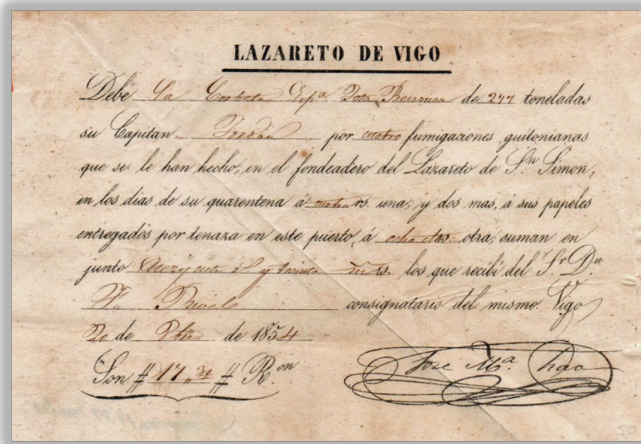 LAZARETO DE VIGO
Debe La Corbeta Espª de 277 toneladas
su Capitan por cuatro fumigaciones guitonianas
que se le han hecho, en el fondeadero del Lazareto de Sn Simon,
en los dias de su quarentena á rs. una; y dos mas, á sus papeles
entregados por tenaza en este puerto, á ocho otra, suman en
junto rs. los que recibí del Sr. Dn
consignatario del mismo. Vigo
20 de de 1854
Son # 17, # R.on
José Mª
50